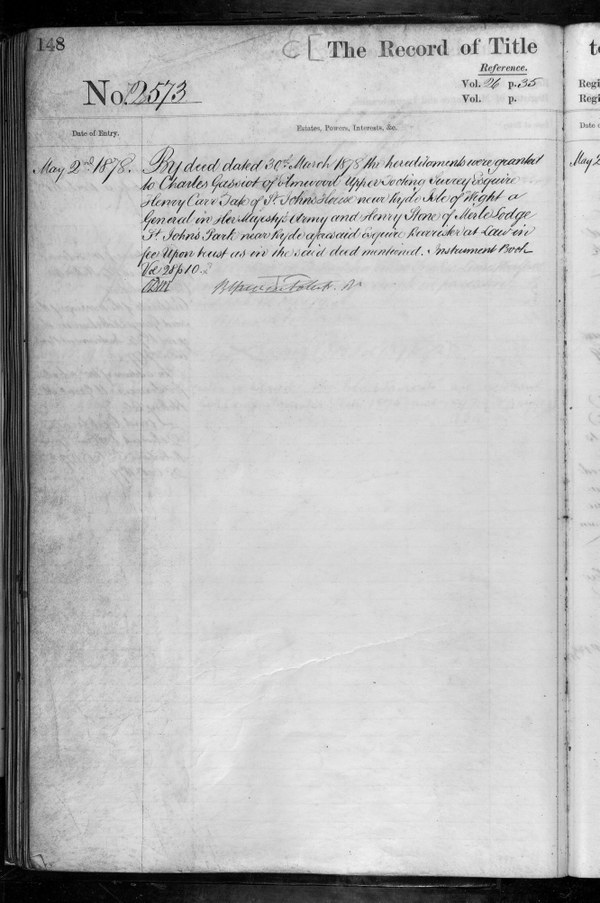 148
The Record of Title
Reference.
Vol. 26 p. 35
Vol. p.
No. 2573
Date of Entry.
Estates, Powers, Interests, &c.
May 2nd 1878. By deed dated 30th March 1878 the hereditaments were granted
to Charles Gassiot of Elmwood Upper Tooting Surrey Esquire
Henry Carr Tate of St Johns House near Ryde Isle of Wight a
General in Her Majestys Army and Henry Stone of Merle Lodge
St Johns Park near Ryde aforesaid Esquire Barrister at Law in
fee Upon trust as in the said deed mentioned. Instrument Book
Vol 21 p 10
to
Regi
Regi
Date o
May 2